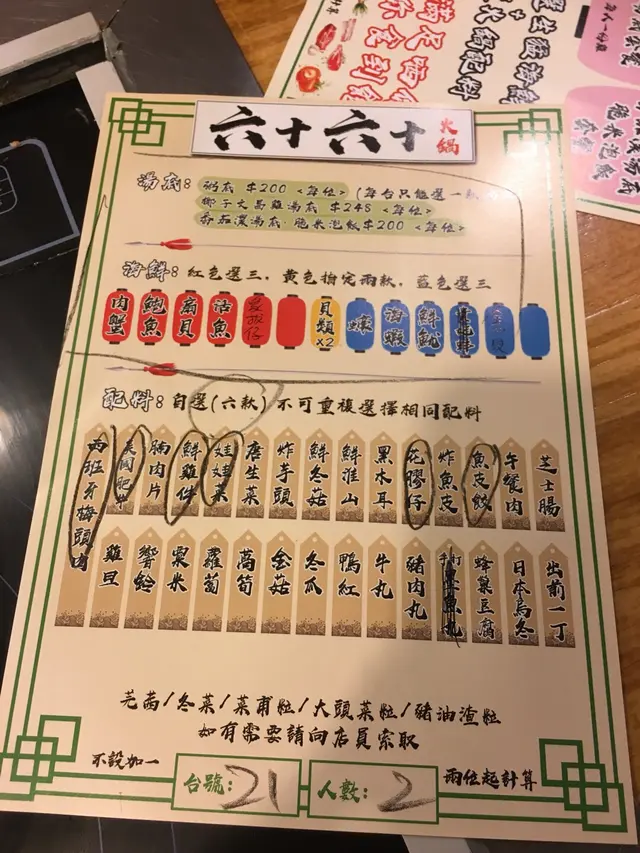 六十六十火鍋
湯底：
粥底 $200 <每位> (每台只能選一款
椰子文昌雞湯底 $248 <每位>
香茄濃湯底·脆米泡飯$200 <每位>
海鮮：紅色選三，黃色指定兩款，藍色選三
肉蟹 鮑魚 扇貝 活魚 貝類x2 蠔 海蝦 鮮魷
配料：自選(六款)不可重複選擇相同配料
西班牙梅頭肉 美國肥牛 腩肉片 鮮雞件 娃娃菜 唐生菜 炸芋頭 鮮冬菇 鮮淮山 黑木耳 花膠仔 炸魚皮 魚皮餃 午餐肉 芝士腸
雞旦 響鈴 粟米 蘿蔔 萵筍 金菇 冬瓜 鴨紅 牛丸 豬肉丸 手打 魚丸 蜂巢豆腐 日本烏冬 出前一丁
芫茜/冬菜/菜甫粒/大頭菜粒/豬油渣粒
如有需要請向店員索取
不設加一 台號：21 人數：2 兩位起計算